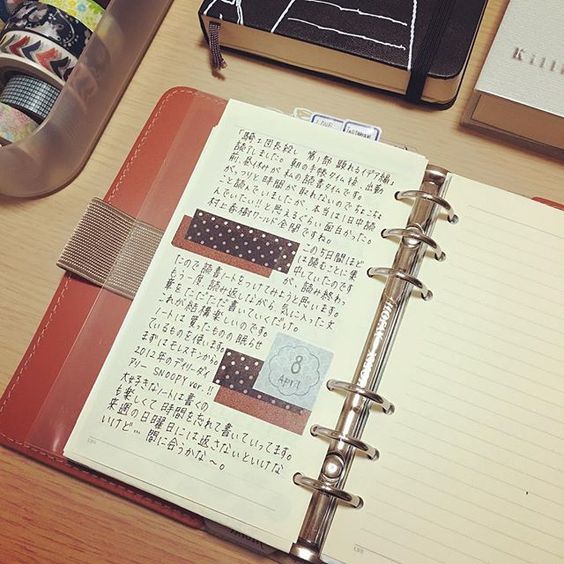 「騎士団長殺し 第1部 顕れるイデア編」
読了しました。朝の手帳タイム後、出勤
前、昼休みが私の読書タイムです。
がっつりと時間が取れないのでちょこちょ
こと読んでいましたが、本当は1日中読
んでいたい!!と思えるぐらい面白かった。
村上春樹ワールド全開ですね。
この5日間ほど
は読むことに集
中していたのです
が、読み終わっ
たので読書ノートをつけてみようと思います。
もう一度、読み返しながら、気に入った文
章をただただ書いていくだけ。
これが結構楽しいのです。
ノートは買ったものの眠らせ
ているものを使います。
まずはモレスキンから。
2012年のデイリーダイ
アリー SNOOPY ver.!!
大好きなノートに書くの
も楽しくて時間を忘れて書いていってます。
来週の日曜日には返さないといけな
いけど…間に合うかな〜。
8
April
Killi